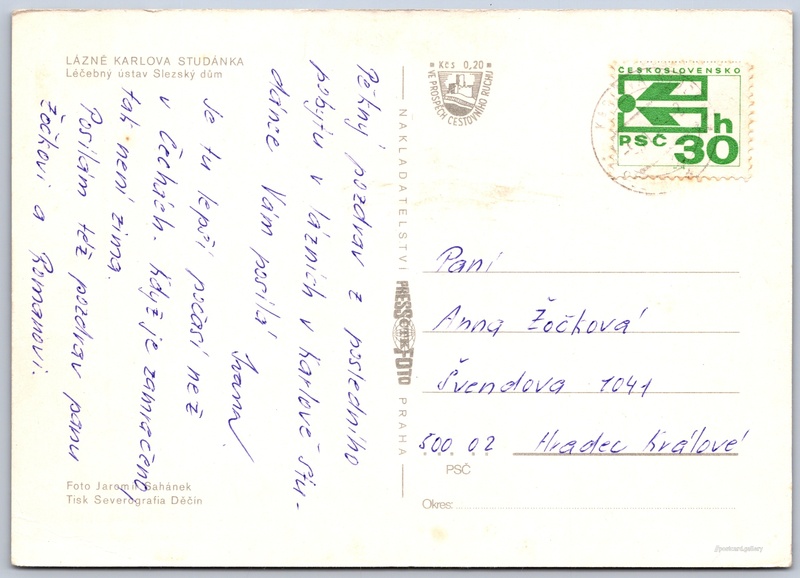 LÁZNĚ KARLOVA STUDÁNKA
Léčebný ústav Slezský dům
Pěkný pozdrav z posledního
pobytu v lázních v Karlově Stu-
dánce Vám posílá
Je tu lepší počasí než
v Čechách. Když je zamračeno,
tak není zima.
Posílám též pozdrav panu
Žočkovi a Romanovi.
Foto Jaromír Gahánek
Tisk Severografia Děčín
NAKLADATELSTVÍ
PRESSFOTO
PRAHA
Kčs 0,20
VE PROSPĚCH CESTOVNÍHO RUCHU
ČESKOSLOVENSKO
h
PSČ 30
Paní
Anna Žočková
Švendova 1041
500 02 Hradec Králové
PSČ
Okres:
postcard.gallery